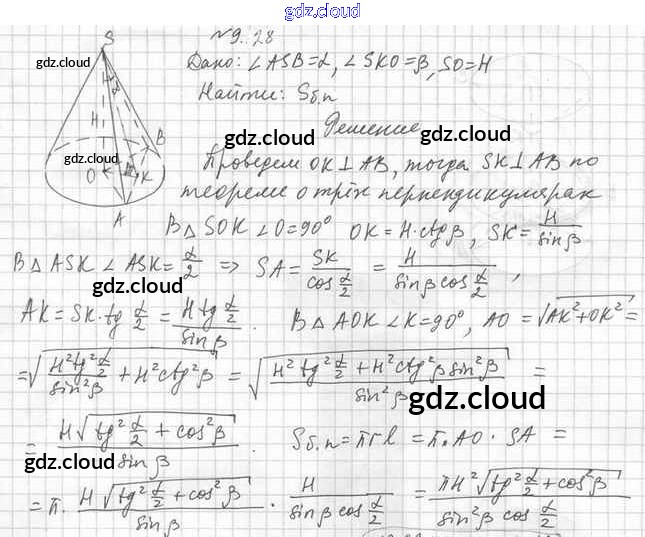 gdz.cloud
№9.28
Дано: ∠ASB=α, ∠SKO=β, SO=H
Найти: Sб.п
Решение
Проведем OK⊥AB, тогда SK⊥AB по
теореме о трёх перпендикулярах
В △ SOK ∠O=90° OK=H·ctgβ, SK=H/sinβ
В △ ASK ∠ASK=α/2 => SA=SK/cos α/2 = H/(sinβ cos α/2),
AK=SK·tg α/2 = H tg α/2 / sinβ. В △ AOK ∠K=90°, AO=√(AK²+OK²)=
=√(H²tg² α/2 / sin²β + H²ctg²β) = √((H²tg² α/2 + H²ctg²β sin²β)/sin²β) =
= H√(tg² α/2 + cos²β) / sinβ. Sб.п=πrl=π·AO·SA=
=π· H√(tg² α/2 + cos²β) / sinβ · H/(sinβ cos α/2) = πH²√(tg² α/2 + cos²β) / (sin²β cos α/2)
S
H
α
B
O
β
K
A
gdz.cloud
gdz.cloud
gdz.cloud
gdz.cloud
gdz.cloud
gdz.cloud
gdz.cloud
gdz.cloud
gdz.cloud
gdz.cloud
gdz.cloud